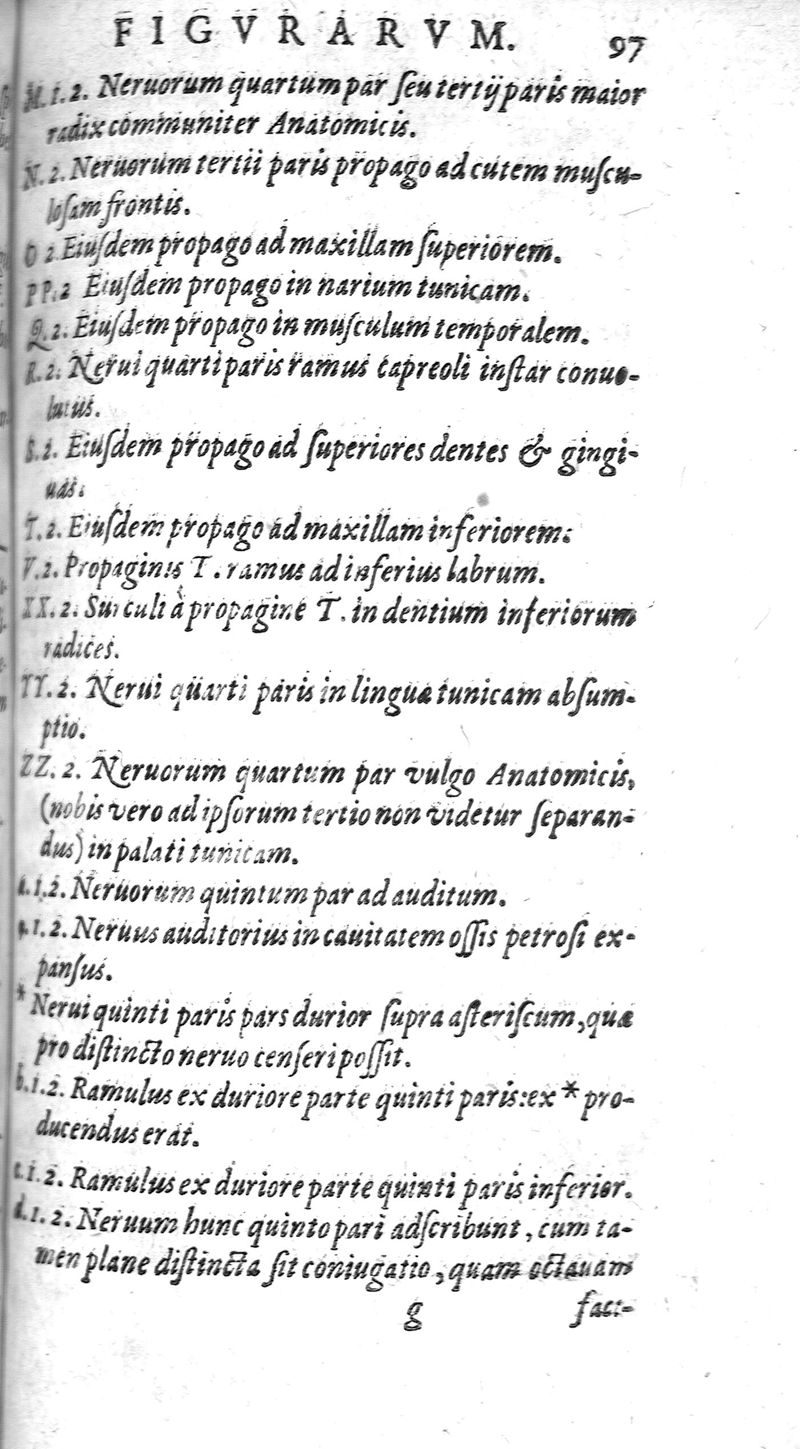 FIGVRARVM. 97
M. 1. 2. Neruorum quartum par ſeu tertij paris maior
radix communiter Anatomicis.
N. 2. Neruorum tertii paris propago ad cutem muſcu-
loſam frontis.
O 2 Eiuſdem propago ad maxillam ſuperiorem.
PP. 2 Eiuſdem propago in narium tunicam.
Q. 2. Eiuſdem propago in muſculum temporalem.
R. 2. Nerui quarti paris ramus capreoli inſtar conuo-
lutus.
S. 2. Eiuſdem propago ad ſuperiores dentes & gingi-
uas.
T. 2. Eiuſdem propago ad maxillam inferiorem.
V. 2. Propaginis T. ramus ad inferius labrum.
XX. 2. Surculi à propagine T. in dentium inferiorum
radices.
YY. 2. Nerui quarti paris in linguæ tunicam abſum-
ptio.
ZZ. 2. Neruorum quartum par vulgo Anatomicis,
(nobis vero ad ipſorum tertio non videtur ſeparan-
dus) in palati tunicam.
a. 1. 2. Neruorum quintum par ad auditum.
1. 2. Neruus auditorius in cauitatem oſſis petroſi ex-
panſus.
* Nerui quinti paris pars durior ſupra aſteriſcum, quæ
pro diſtincto neruo cenſeri poſſit.
b. 1. 2. Ramulus ex duriore parte quinti paris: ex * pro-
ducendus erat.
c. 1. 2. Ramulus ex duriore parte quinti paris inferior.
d. 1. 2. Neruum hunc quinto pari adſcribunt, cum ta-
men plane diſtincta ſit coniugatio, quam octauam
g faci-